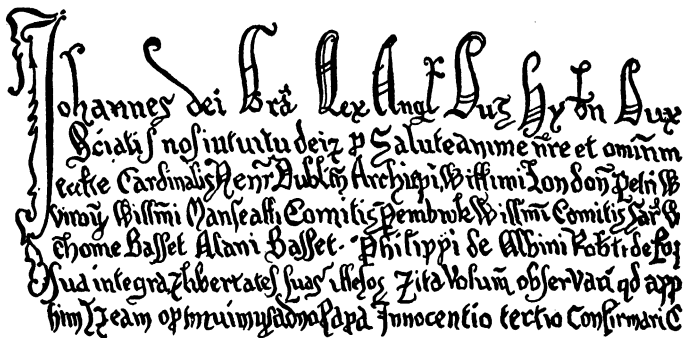 Johannes dei Grā Rex Angl Dn̄s Hybn Dux
Sciatis nos intuitu dei & p Salute anime n̄re et omiūm
eccłie Cardinalis Henr̄ Dublin̄ Archiep̄i, Willimi London̄ Petri W
Willmi Marescalli Comitis Pembrok Willmi Comitis Sar̄ W
Thome Basset Alani Basset. Philippi de Albini Robti de
Sua integra & libertates suas illesas & ita volum̄ observari qd app
optinuimus a dno Papa Innocentio tertio Confirmari